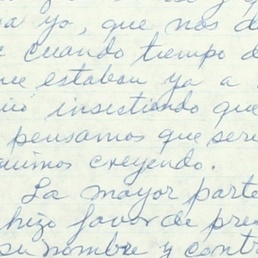 ya yo, que nos d
cuando tiempo d
estaban ya a
insistiendo que
pensamos que ser
creyendo.
La mayor parte
hizo favor de pre
su nombre y contr